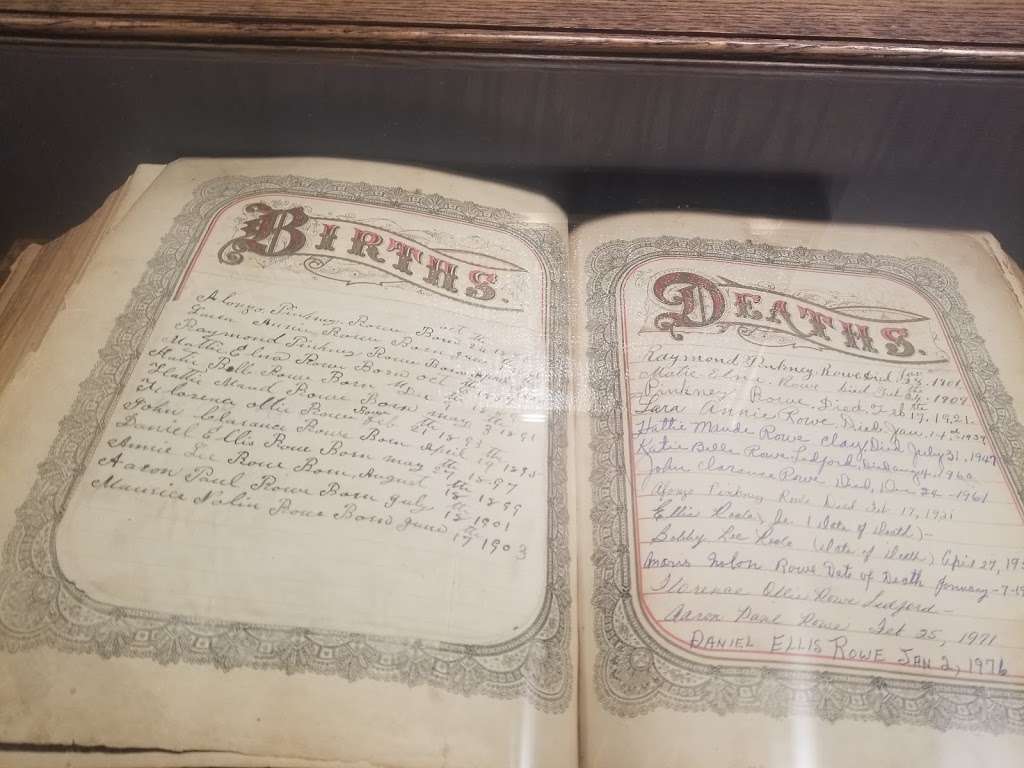 BIRTHS.
Alonzo Pinkney Rowe Born Oct the
Lara Annie Rowe Born
Raymond Pinkney Rowe Born
Mattie Elna Rowe Born Oct the
Katie Bell Rowe Born Dec the
Hattie Maud Rowe Born may 3 1891
Florence Ollie Rowe Born Feb 1893
John Clarance Rowe Born April 19th 1895
Daniel Ellis Rowe Born may the 1897
Annie Lee Rowe Born August 18th 1899
Aaron Paul Rowe Born July 18 1901
Maurice Nolin Rowe Born June 17 1903
DEATHS.
Raymond Pinkney Rowe died 1901
Matie Elna Rowe died Feb 24th 1909
Pinkney Rowe, Died Feb 17th, 1921-
Lara Annie Rowe, Died, Jan. 14th
Hattie Maude Rowe Clay, Died July 31, 1947
Katie Belle Rowe Ledford, Died
John Clarance Rowe, Died, Dec 24 - 1961
Pinkney Rowe Died Feb 17, 1921
Ellis Jr. (date of Death) -
Bobby Lee (date of Death) April 27,
Nolon Rowe Date of Death January - 7 -
Florence Ollie Rowe Ledford -
Aaron Paul Rowe Feb 25, 1971
DANIEL ELLIS ROWE JAN 2, 1976